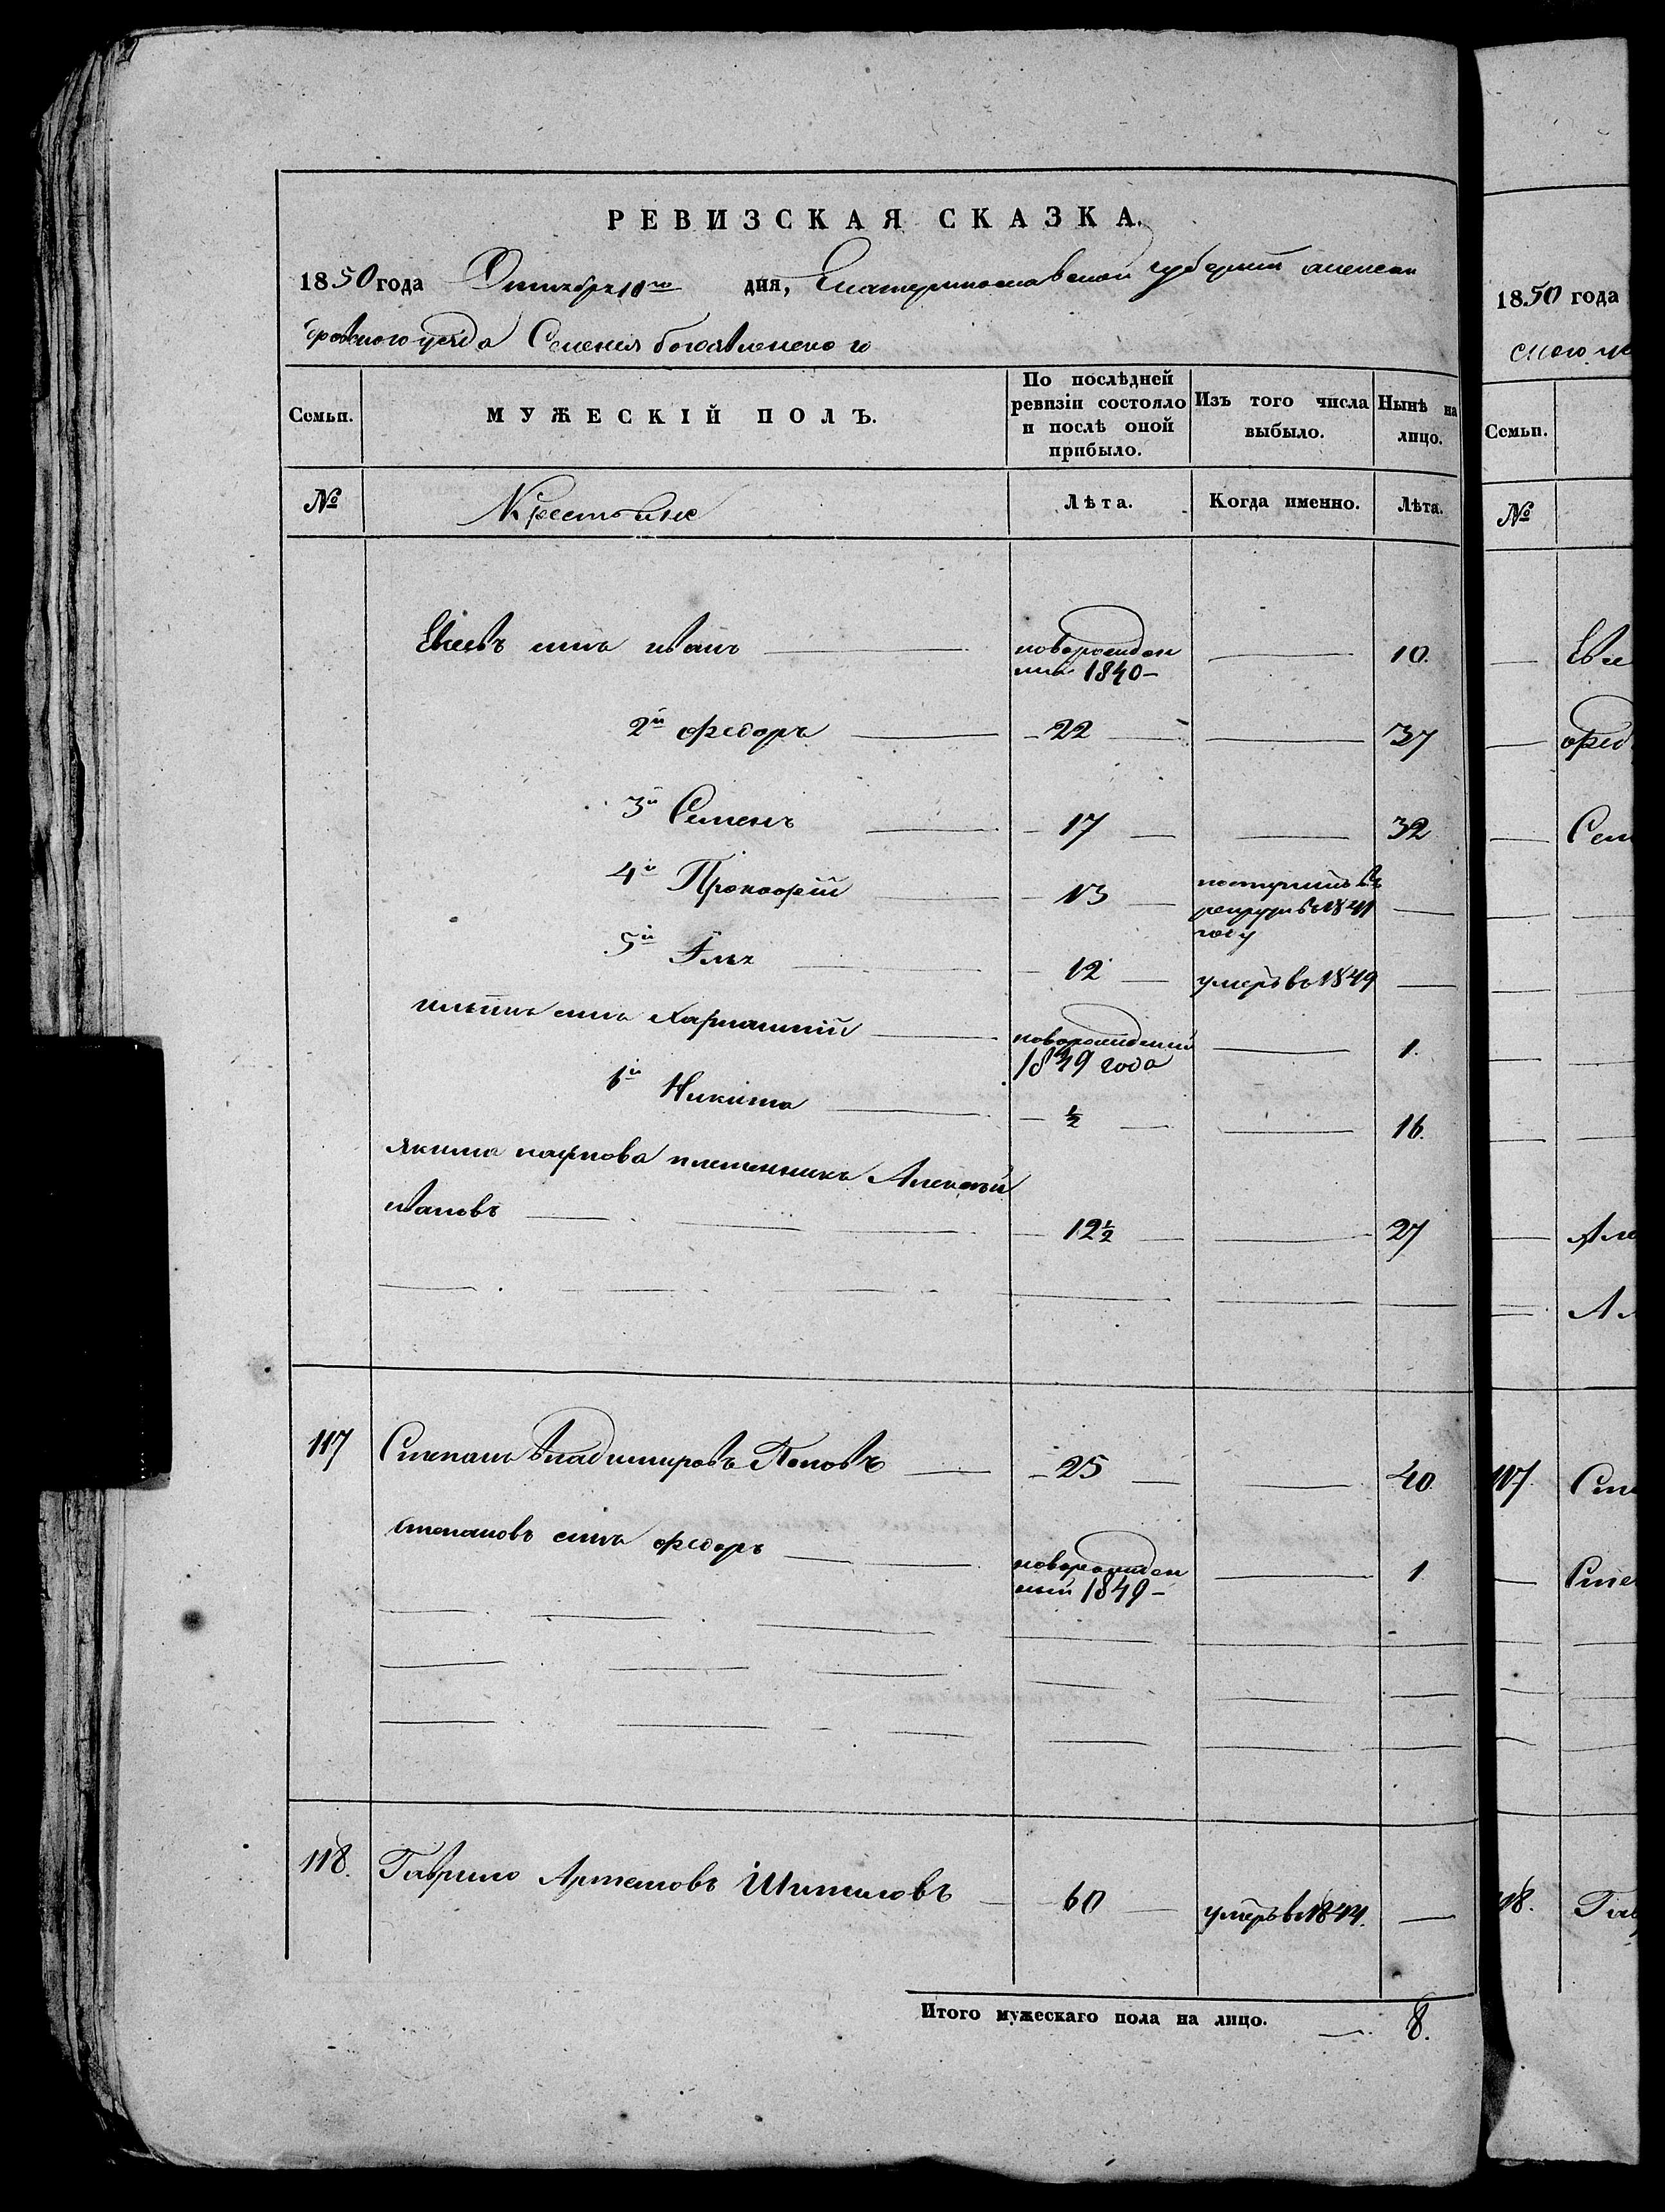 РЕВИЗСКАЯ СКАЗКА.
1850 года Октября 10го дня, Екатеринославской губернии алексан
дровского уезда Селения богоявленского
Семьи. МУЖЕСКІЙ ПОЛЪ. По послѣдней ревизіи состояло и послѣ оной прибыло. Изъ того числа выбыло. Нынѣ на лицо.
№ Крестьяне Лѣта. Когда именно. Лѣта.
Евсеевъ сынъ иванъ новорожден 10.
ный 1840
2й федоръ 22 37
3й Семенъ 17 32
4й Прокофій 13 поступилъ въ
рекруты въ 1841
году
5й Илья 12 умеръ въ 1849
ильинъ сынъ Харлампій новорожденый 1.
1849 года
6й Никита ½ 16.
якима наумова племенникъ Алексей
ивановъ 12½ 27
117 Степанъ владимировъ Поповъ 25 40.
степановъ сынъ федоръ новорожден 1
ный 1849
118. Гаврило Артемовъ Шипиловъ 60 умеръ въ 1844.
Итого мужескаго пола на лицо. 8.
1850 года
Семьи.
№
Евсе
федо
Сем
Але
117. Сте
Степ
118. Гав